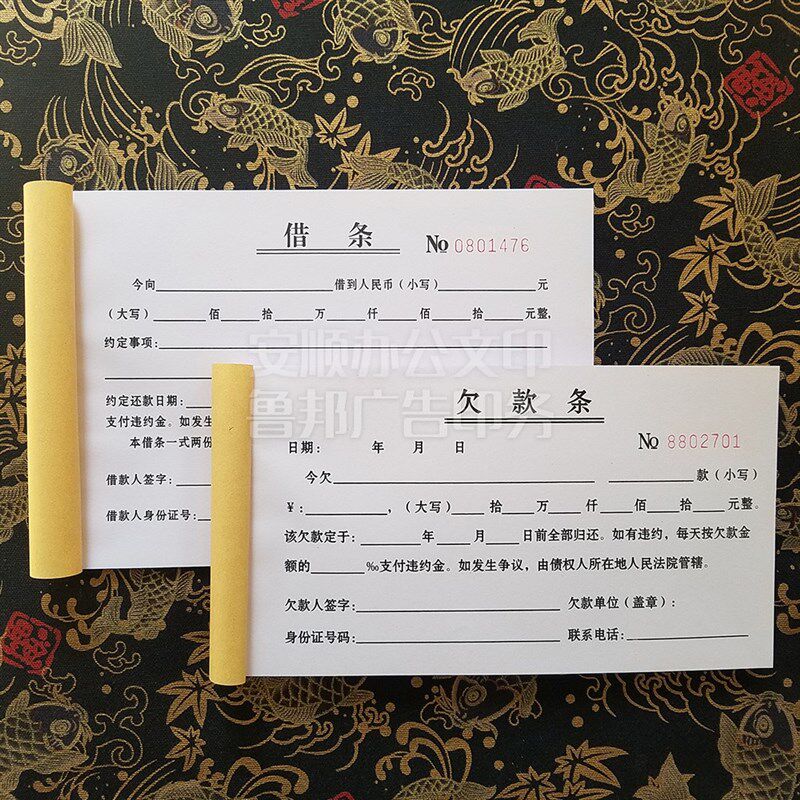 借 条 № 0801476
今向 借到人民币（小写） 元
（大写） 佰 拾 万 仟 佰 拾 元整，
约定事项：
约定还款日期：
支付违约金。如发生
本借条一式两份
借款人签字：
借款人身份证号：
安顺办公文印
鲁邦广告印务
欠 款 条
日期： 年 月 日 № 8802701
今欠 款（小写）
￥： ，（大写） 拾 万 仟 佰 拾 元整。
该欠款定于： 年 月 日前全部归还。如有违约，每天按欠款金
额的 ‰支付违约金。如发生争议，由债权人所在地人民法院管辖。
欠款人签字： 欠款单位（盖章）：
身份证号码： 联系电话：